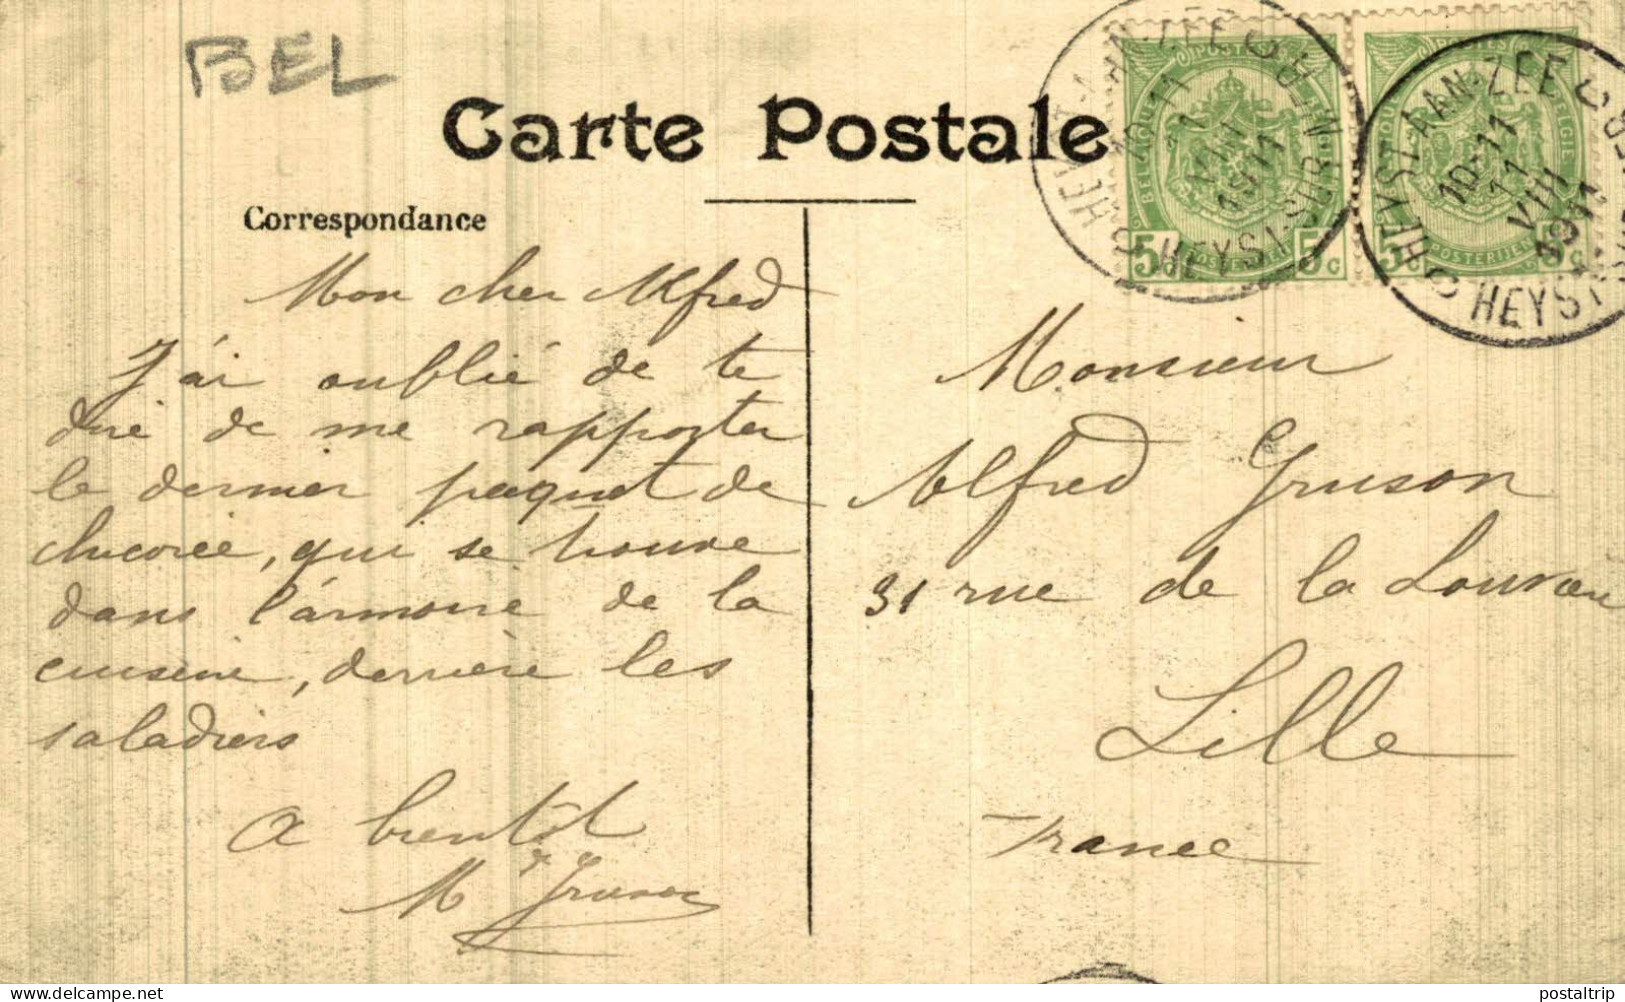 BEL
Carte Postale
Correspondance
Mon cher Alfred
J'ai oublié de te
dire de me rapporter
le dernier paquet de
chicorée, qui se trouve
dans l'armoire de la
cuisine, derrière les
saladiers
A bientôt
M Gruson
Monsieur
Alfred Gruson
31 rue de la Louvière
Lille
France
HEYST-AAN-ZEE
10-11
11
VIII
1911
HEYST-SUR-MER
HEYST-AAN-ZEE
10-11
11
VIII
1911
HEYST
5c 5c
5c 5c
postaltrip